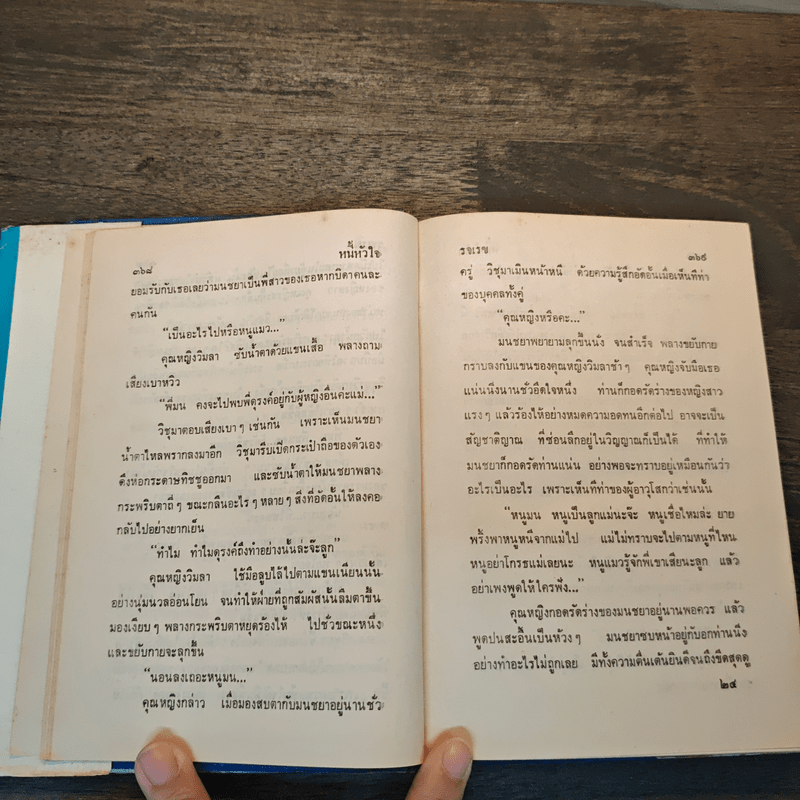 ๓๖๘ หนี้หัวใจ
ยอมรับกับเธอเลยว่ามนชยาเป็นพี่สาวของเธอหากบิดาคนละ
คนกัน
“เป็นอะไรไปหรือหนูแมว...”
คุณหญิงวิมลา ซับน้ำตาด้วยแขนเสื้อ พลางถาม
เสียงเบาหวิว
“พี่มน คงจะไปพบพี่ดุรงค์อยู่กับผู้หญิงอื่นค่ะแม่...”
วิชุมาตอบเสียงเบา ๆ เช่นกัน เพราะเห็นมนชยา
น้ำตาไหลพรากลงมาอีก วิชุมารีบเปิดกระเป๋าถือของตัวเอง
ดึงห่อกระดาษทิชชูออกมา และซับน้ำตาให้มนชยาพลาง
กระพริบตาถี่ ๆ ขณะกลืนอะไร ๆ หลาย ๆ สิ่งที่อัดอั้นให้ลงคอ
กลับไปอย่างยากเย็น
“ทำไม ทำไมดุรงค์ถึงทำอย่างนั้นล่ะจ๊ะลูก”
คุณหญิงวิมลา ใช้มือลูบไล้ไปตามแขนเนียนนั้น
อย่างนุ่มนวลอ่อนโยน จนทำให้ฝ่ายที่ถูกสัมผัสนั้นลืมตาขึ้น
มองเงียบ ๆ พลางกระพริบตาหยุดร้องไห้ ไปชั่วขณะหนึ่ง
และขยับกายจะลุกขึ้น
“นอนลงเถอะหนูมน...”
คุณหญิงกล่าว เมื่อมองสบตากับมนชยาอยู่นานชั่ว
รจเรข ๓๖๙
ครู่ วิชุมาเมินหน้าหนี ด้วยความรู้สึกอัดอั้นเมื่อเห็นทีท่า
ของบุคคลทั้งคู่
“คุณหญิงหรือคะ...”
มนชยาพยายามลุกขึ้นนั่ง จนสำเร็จ พลางขยับกาย
กราบลงกับแขนของคุณหญิงวิมลาช้า ๆ คุณหญิงจับมือเธอ
แน่นนิ่งนานชั่วอึดใจหนึ่ง ท่านก็กอดรัดร่างของหญิงสาว
แรง ๆ แล้วร้องไห้อย่างหมดความอดทนอีกต่อไป อาจจะเป็น
สัญชาติญาณ ที่ซ่อนลึกอยู่ในวิญญาณก็เป็นได้ ที่ทำให้
มนชยาก็กอดรัดท่านแน่น อย่างพอจะทราบอยู่เหมือนกันว่า
อะไรเป็นอะไร เพราะเห็นทีท่าของผู้อาวุโสกว่าเช่นนั้น
“หนูมน หนูเป็นลูกแม่นะจ๊ะ หนูเชื่อไหมล่ะ ยาย
พริ้งพาหนูหนีจากแม่ไป แม่ไม่ทราบจะไปตามหนูที่ไหน
หนูอย่าโกรธแม่เลยนะ หนูแมวรู้จักพี่เขาเสียนะลูก แล้ว
อย่าเพ่งพูดให้ใครฟัง...”
คุณหญิงกอดรัดร่างของมนชยาอยู่นานพอควร แล้ว
พูดปนสะอื้นเป็นห้วง ๆ มนชยาซบหน้าอยู่กับอกท่านนิ่ง
อย่างทำอะไรไม่ถูกเลย มีทั้งความตื่นเต้นยินดีจนถึงขีดสุดดู
๒๔